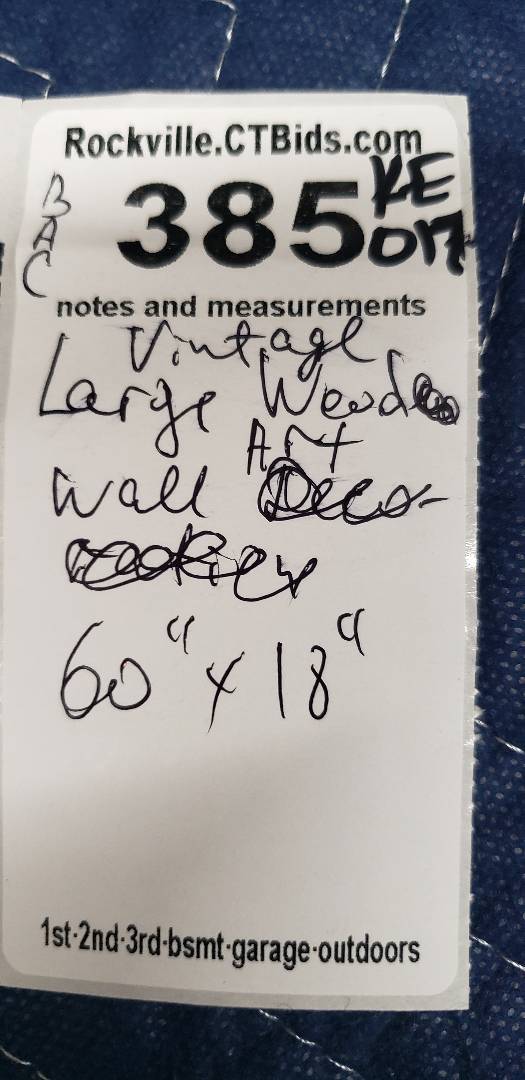 Rockville.CTBids.com
BAC
385
KE
017
notes and measurements
Vintage
Large Wood
Art
Wall
60" x 18"
1st·2nd·3rd·bsmt·garage·outdoors